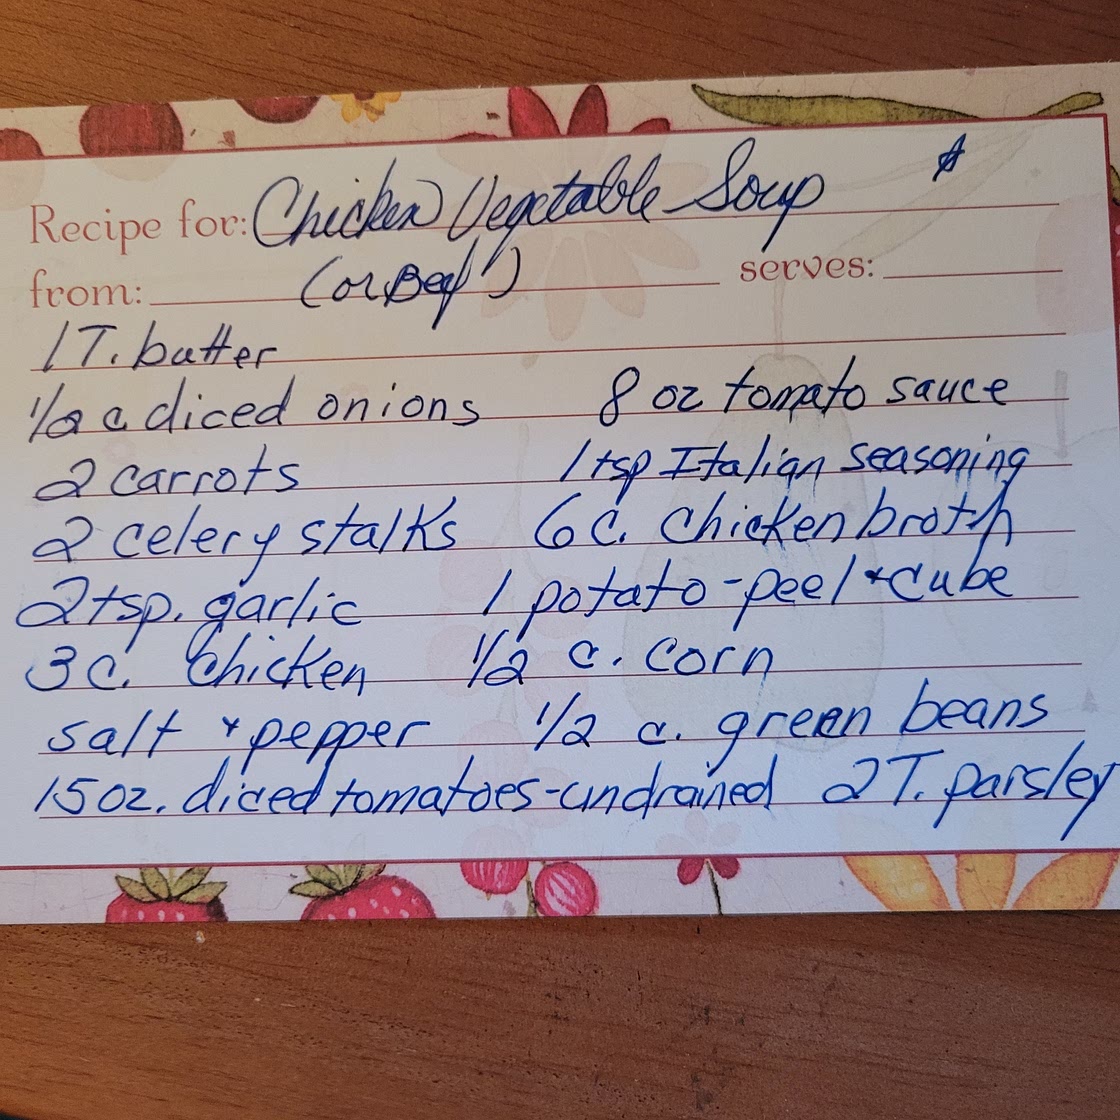 Recipe for: Chicken Vegetable Soup
from: (or Beef) serves:
1 T. butter
1/2 c diced onions 8 oz tomato sauce
2 carrots 1 tsp Italian seasoning
2 celery stalks 6 c. chicken broth
2 tsp. garlic 1 potato - peel + cube
3 c. chicken 1/2 c. corn
salt + pepper 1/2 c. green beans
15 oz. diced tomatoes - undrained 2 T. parsley